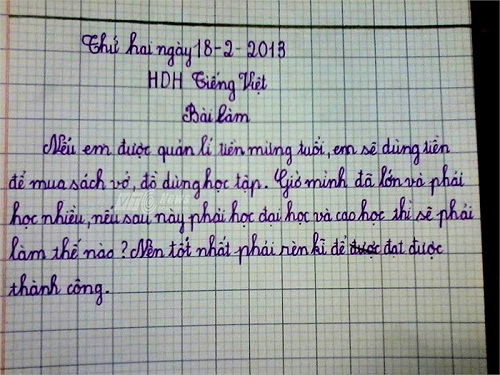 Thứ hai ngày 18-2-2013
HDH Tiếng Việt
Bài làm
Nếu em được quản lí tiền mừng tuổi, em sẽ dùng tiền
để mua sách vở, đồ dùng học tập. Giờ mình đã lớn và phải
học nhiều, nếu sau này phải học đại học và cao học thì sẽ phải
làm thế nào? Nên tốt nhất phải rèn kĩ để được đạt được
thành công.